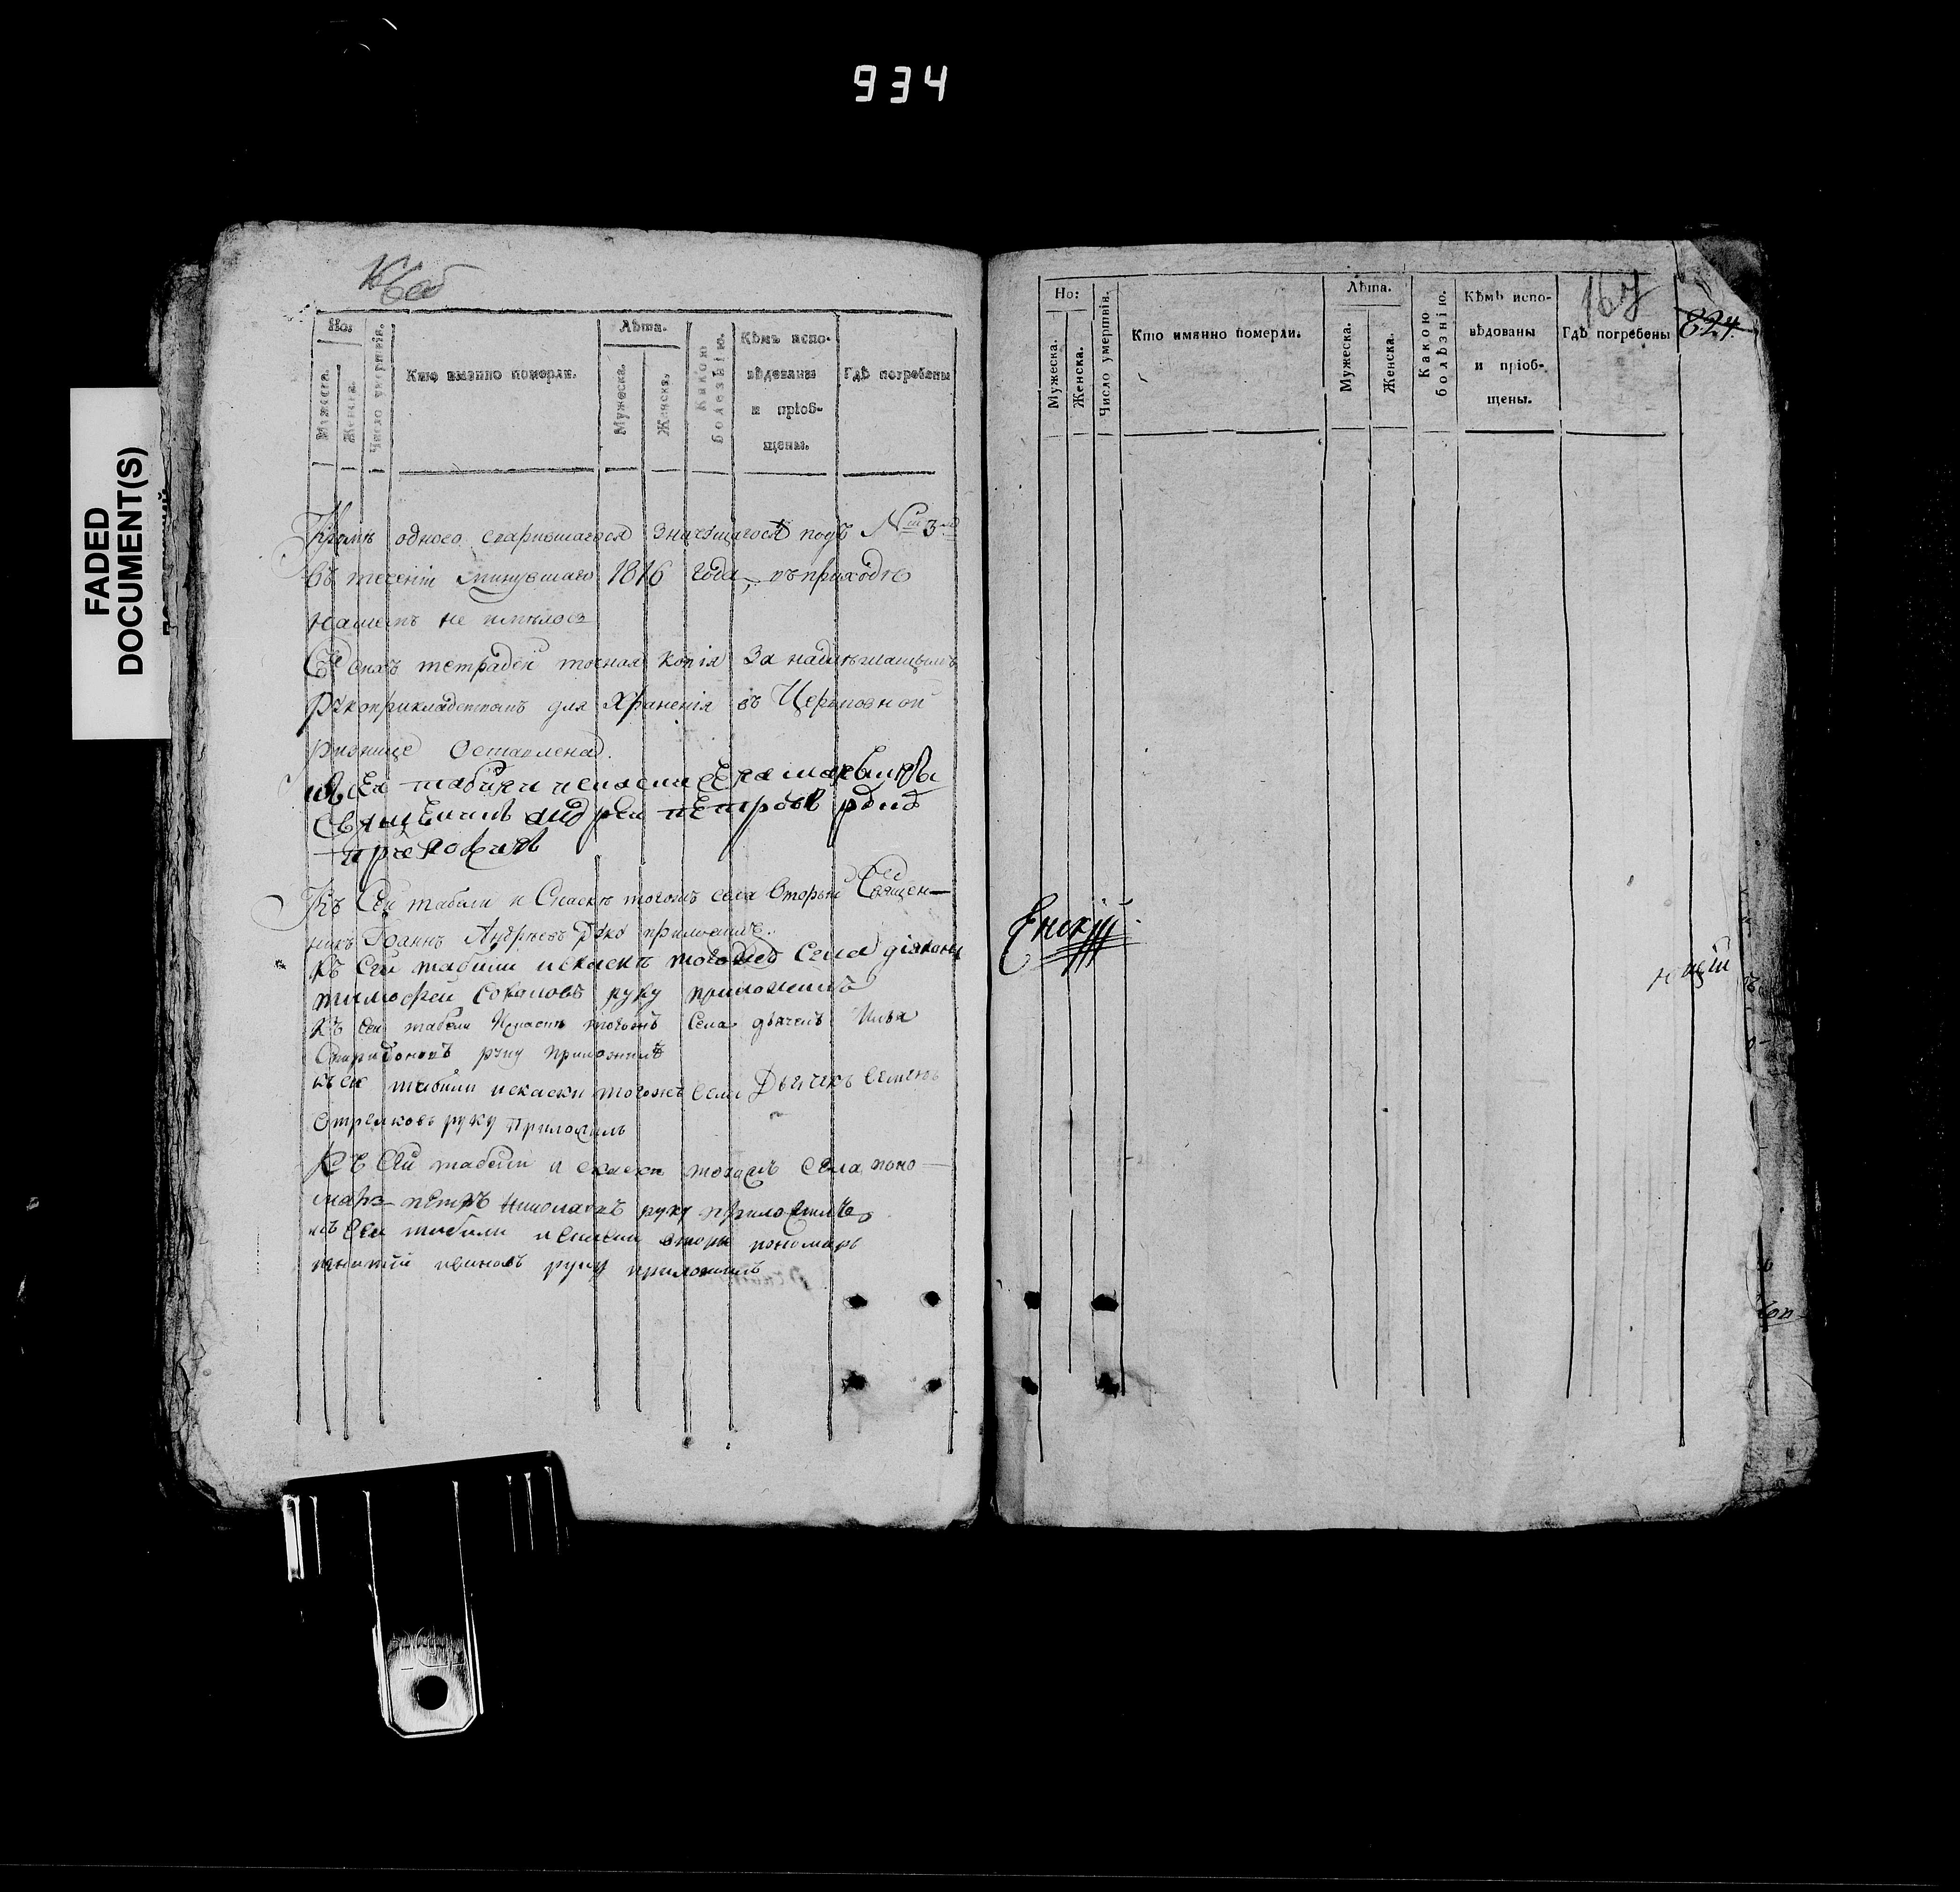 934
FADED
DOCUMENT(S)
Но:
Мужеска.
Женска.
Число умертвія.
Кто имянно померли.
Лѣта.
Мужеска.
Женска.
Какою
болѣзнію.
Кѣмъ испо-
вѣдованы
и пріоб-
щены.
Гдѣ погребены
Кромѣ одного старившагося значущагося подъ № 3
въ теченіи минувшаго 1816 года, въ приходѣ
нашемъ не имѣлось
Съ сихъ тетрадей точная копія за надлежащимъ
рукоприкладствомъ для храненія въ Церьковной
ризнице оставлена.
Священикъ андреи петровъ
приложилъ
Къ Сеи табели и Скаскѣ тогожъ села вторыи Священ-
никъ Іоаннъ Андрѣевъ руку приложилъ.
Къ сеи табели искаскѣ тогожъ села діяконъ
тимофеи руку приложилъ
Къ сеи табели искаске тогожъ села дьячекъ Илья
Спиридоновъ руку приложилъ
къ сеи табели искаски тогожъ села Дьячекъ семенъ
Стрелковъ руку приложилъ
Къ Сеи табели и скаски тогожъ села поно-
марь петръ николаевъ руку приложилъ
къ сеи табели и скаски вторы пономарь
ивановъ руку приложилъ
Но:
Мужеска.
Женска.
Число умертвія.
Кто имянно померли.
Лѣта.
Мужеска.
Женска.
Какою
болѣзнію.
Кѣмъ испо-
вѣдованы
и пріоб-
щены.
Гдѣ погребены
167
824.
Енскій